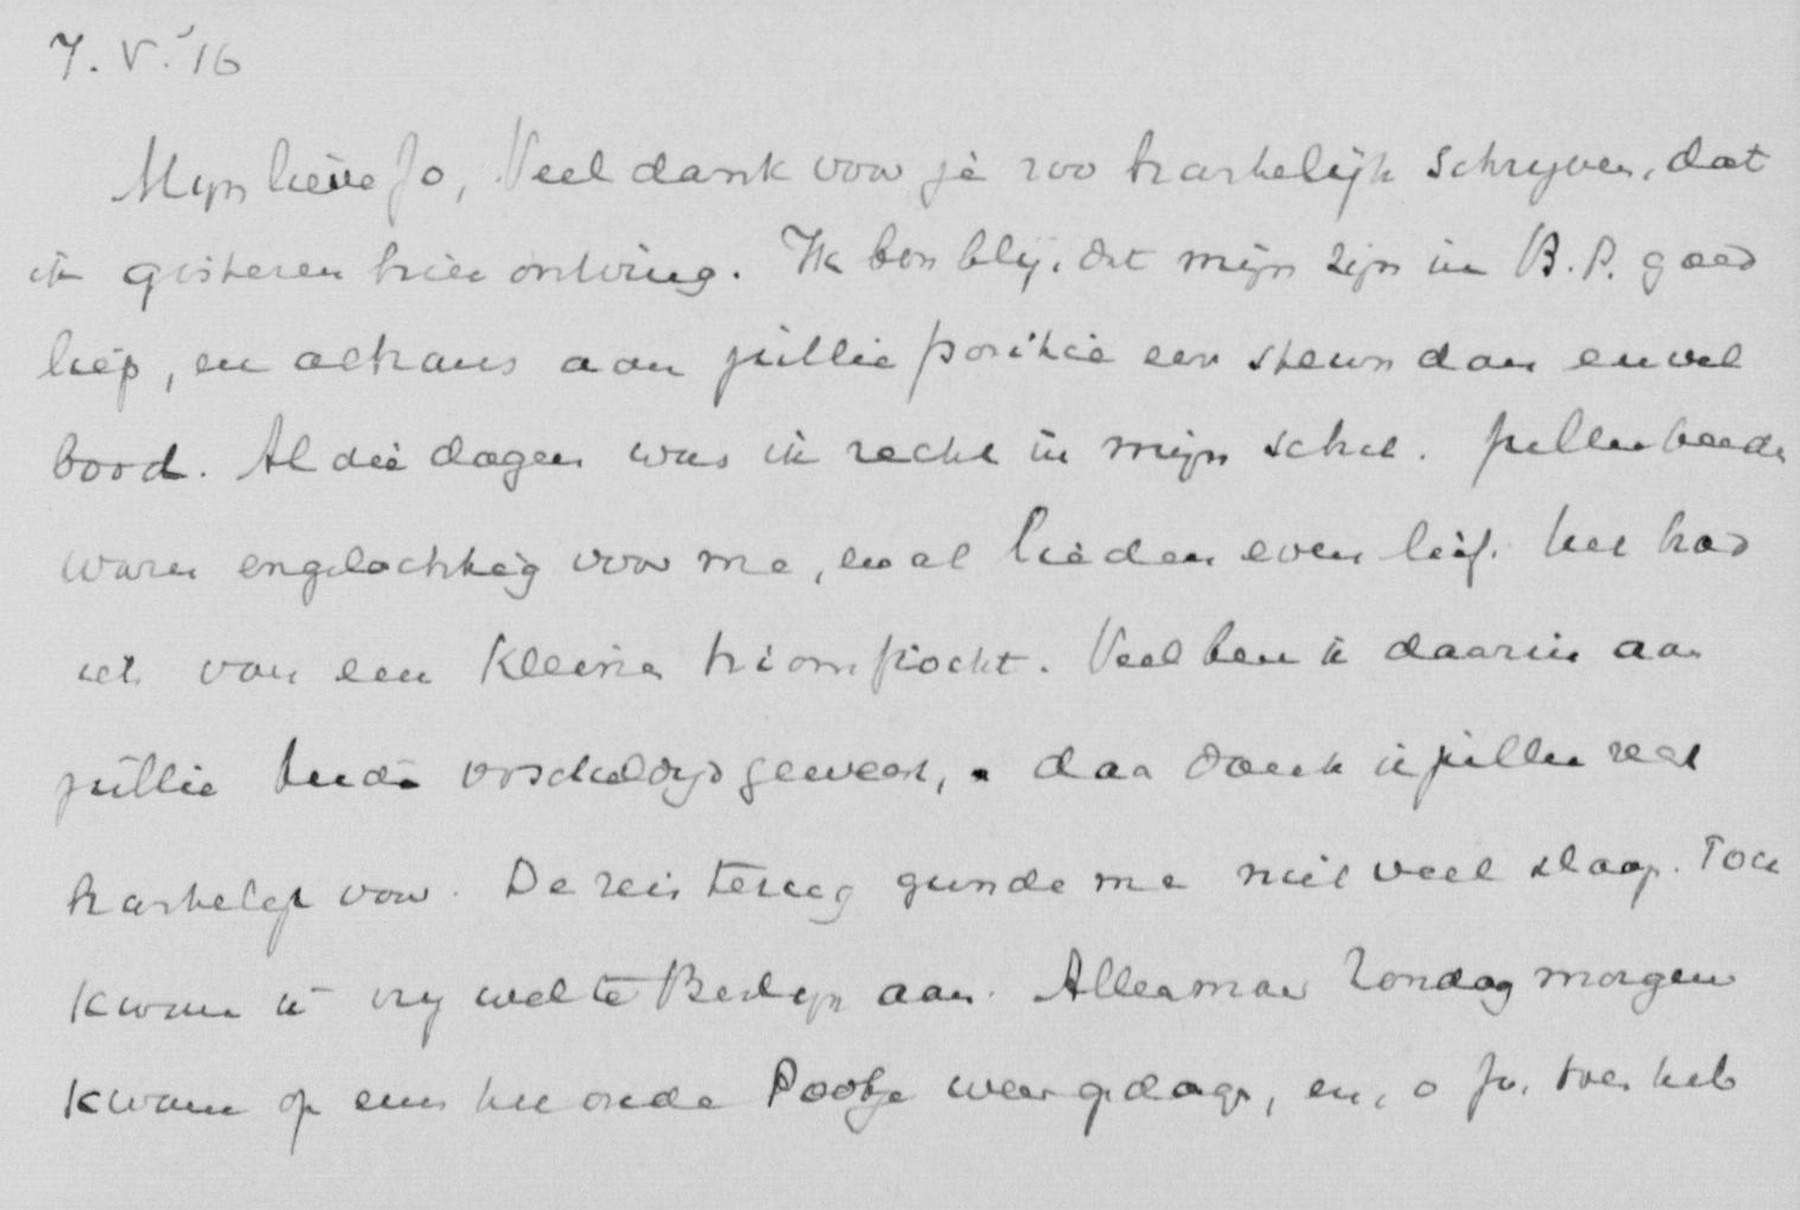 7. V. '16
Mijn lieve Jo, Veel dank voor je zoo hartelijk schrijven, dat
ik gisteren hier ontving. Ik ben blij, dat mijn zijn in B.P. goed
liep, en althans aan jullie positie een steun dan enwel
bood. Al die dagen was ik recht in mijn schik. Jullie beide
waren engelachtig voor me, en al lieden even lief. Het had
iets van een kleine triomftocht. Veel ben ik daarin aan
jullie beide verschuldigd geweest, daar dank ik jullie zeer
hartelijk voor. De reis terug gunde me niet veel slaap. Toch
kwam ik vrij wel te Berlijn aan. Alleen maar Zondag morgen
kwam op eens het oude Pootje weer opdagen, en, o Jo, toen heb